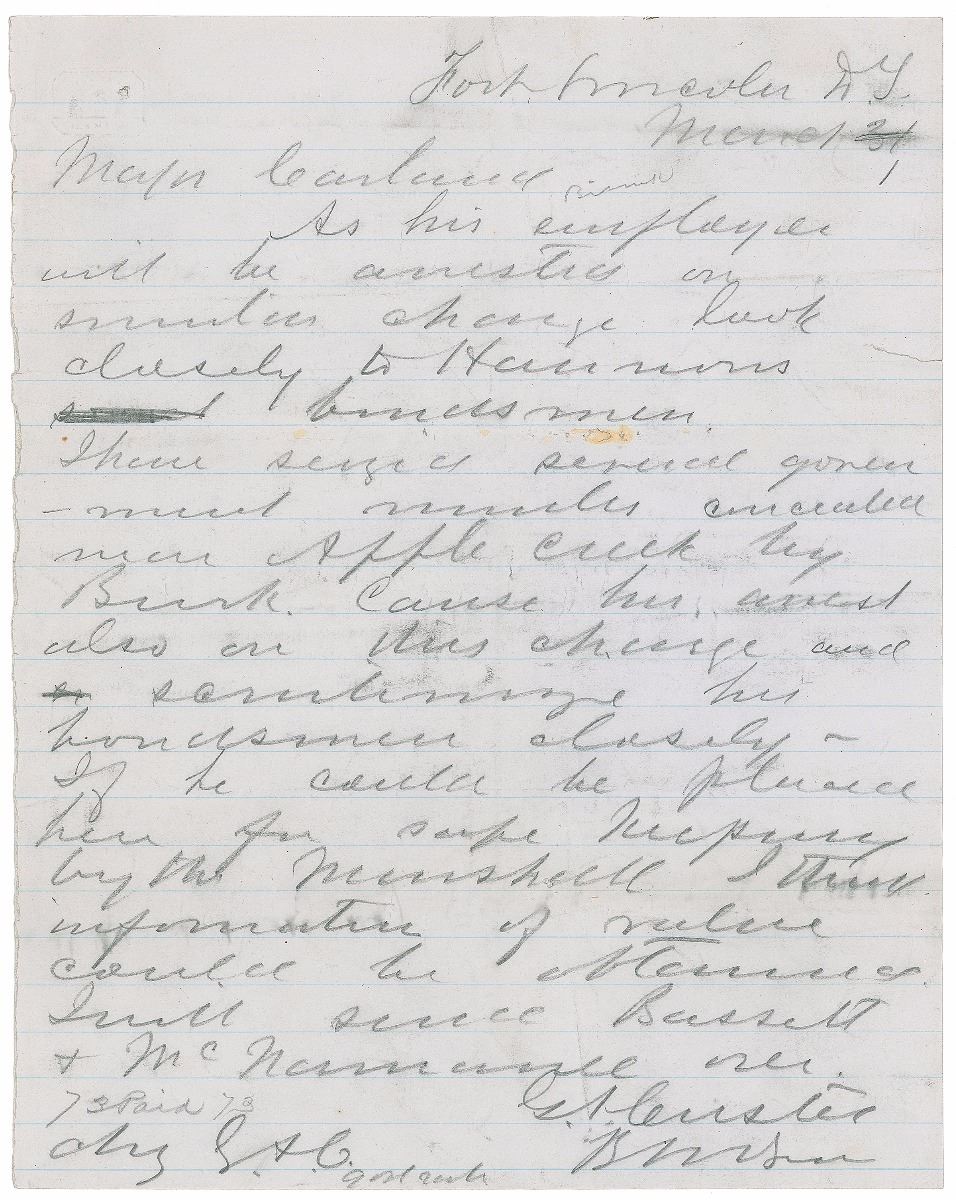 Fort Lincoln D.T.
March 31
1
Major Carland
As his employer
will be arrested on
similar charge look
closely to Harmons
bondsmen.
I have seized several govern
-ment mules concealed
near Apple creek by
Burk. Cause his arrest
also on this charge and
scrutinize his
bondsmen closely -
If he could be placed
here for safe keeping
by the Marshall I think
information of value
could be obtained.
I will send Bassett
& McNamara over.
73 Paid 73 G A Custer
Chg G.A.C.